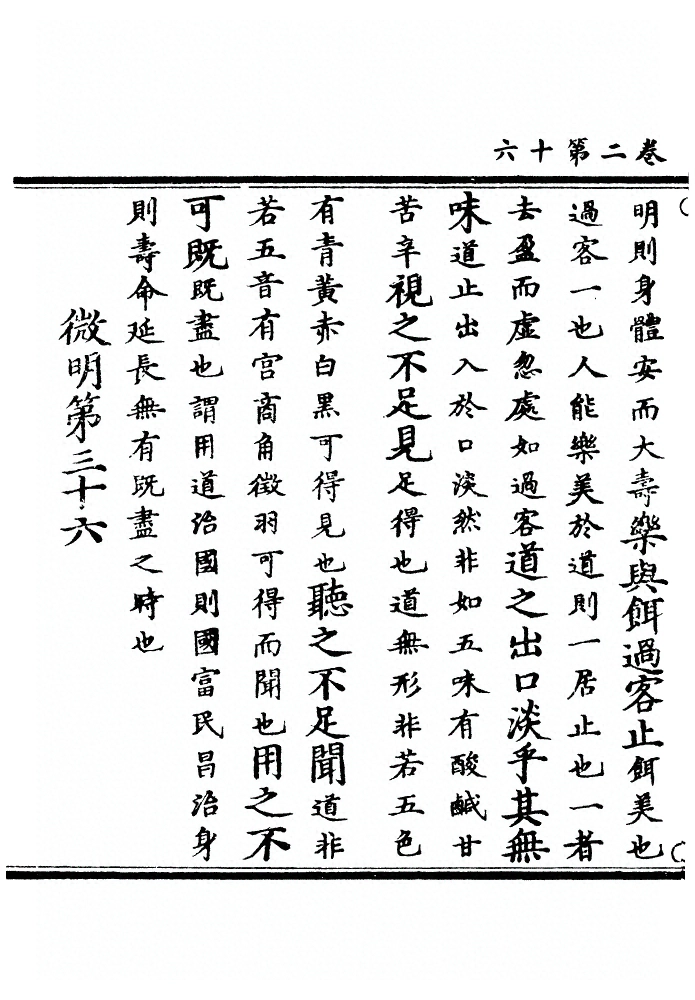 卷二第十六
明則身體安而大壽樂與餌過客止餌美也
過客一也人能樂美於道則一居止也一者
去盈而虛忽處如過客道之出口淡乎其無
味道止出入於口淡然非如五味有酸鹹甘
苦辛視之不足見足得也道無形非若五色
有青黃赤白黑可得見也聽之不足聞道非
若五音有宮商角徵羽可得而聞也用之不
可既既盡也謂用道治國則國富民昌治身
則壽命延長無有既盡之時也
微明第三十六